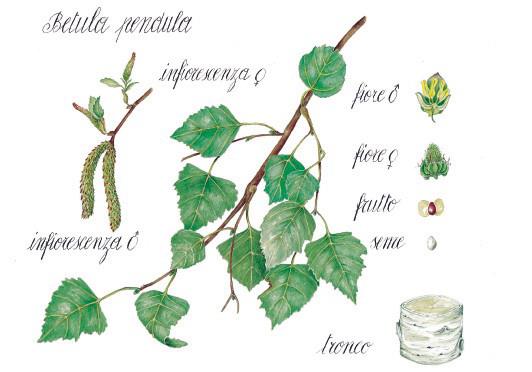 Betula pendula
infiorescenza ♀
fiore ♂
fiore ♀
frutto
seme
infiorescenza ♂
tronco